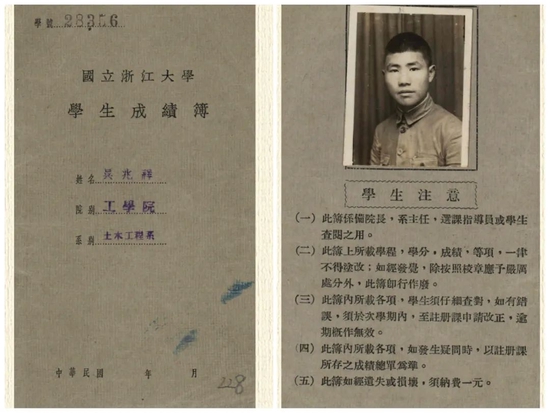 學號 28356
國立浙江大學
學生成績簿
姓名 吳兆祥
院別 工學院
系別 土木工程系
中華民國 年 月
228
學生注意
(一) 此簿係備院長,系主任,選課指導員或學生
查閱之用。
(二) 此簿上所載學程,學分,成績,等項,一律
不得塗改;如經發覺,除按照校章應予嚴厲
處分外,此簿即行作廢。
(三) 此簿內所載各項,學生須仔細查對,如有錯
誤,須於次學期內,至註册課申請改正,逾
期概作無效。
(四) 此簿內所載各項,如發生疑問時,以註册課
所存之成績總單爲準。
(五) 此簿如經遺失或損壞,須納費一元。